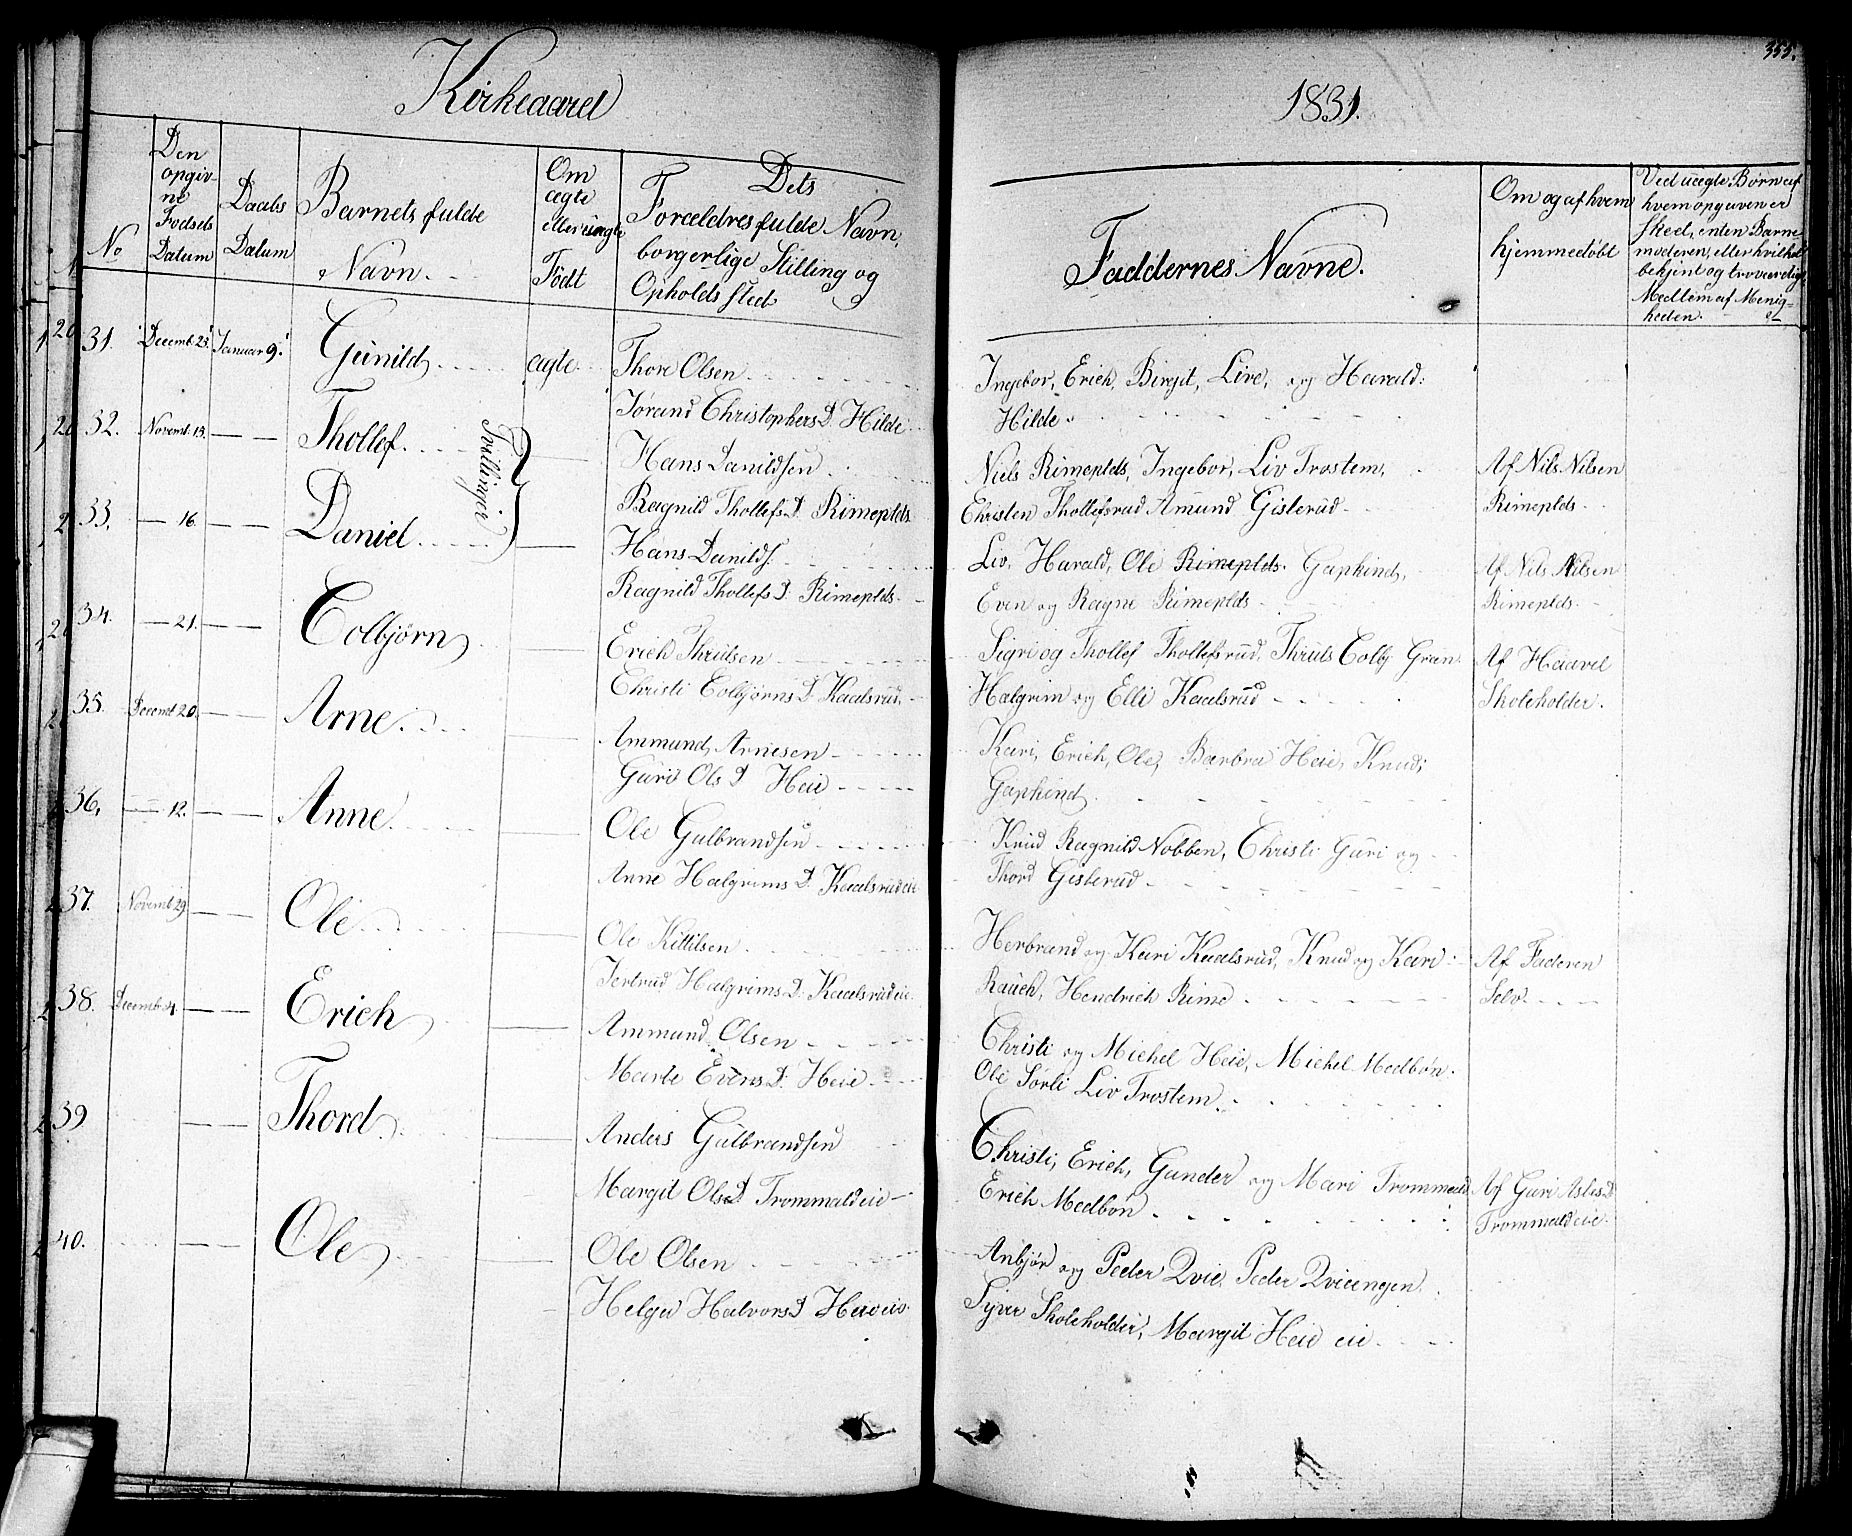 355.
Kirkeaaret
1831.
No
Den opgiv-
ne
Fødsels
Datum
Daabs
Datum
Barnets fulde
Navn.
Om
ægte
eller uægte
Födt
Dets
Forældres fulde Navn,
borgerlige Stilling og
Opholds sted
Faddernes Navne.
Om og af hvem
hjemmedøbt
Ved uægte Børn af
hvem opgaven er
skeed, enten Barne
moderen, eller hvilket
bekjent og troværdigt
Medlem af Menig-
heden.
31. Decemb. 23. Januar 9. Gunild ægte Thore Olsen
Jørand Christophers D. Hilde
Ingebor, Erich, Birgit, Live, og Harald
Hilde
32. Novemb. 13. Thollef. Tvillinger Hans Danildsen
Ragnild Thollefs D. Rimeplds
Niels Rimeplds, Ingebor, Liv Trostem,
Christen Thollefsrud Amund Gisterud
Af Nils Nilsen
Rimeplds.
33. 16. Daniel Hans Danilds.
Ragnild Thollefs D. Rimeplds.
Liv, Harald, Ole Rimeplds. Gaptind,
Even og Ragne Rimeplds
Af Nils Nilsen
Rimeplds.
34. 21. Colbjørn Erich Thrulsen
Christi Colbjørns D. Kaalsrud.
Sigri og Thollef Thollefsrud, Thruls Colbj. Grøn
Halgrim og Elli Kaalsrud
Af Haavel
Skoleholder.
35. Decemb. 20. Arne. Ammund Arnesen
Guri Ols D Heie
Kari, Erich, Ole, Barbra Heie, Knud,
Gaptind.
36. 12. Anne. Ole Gulbrandsen
Anne Halgrims D. Kaalsrudeie
Knud Ragnild Nobben, Christi Guri og
Thord Gisterud
37. Novemb. 29. Ole Ole Kittilsen
Jertrud Halgrims D. Kaalsrudeie.
Herbrand og Kari Kaalsrud, Knud og Kari
Rauch, Hendrich Rime
Af Faderen
Selv.
38. Decemb. 4. Erich Ammund Olsen
Marte Evens D. Heie
Christi og Michel Heie, Michel Medbøn.
Ole Sørli Liv Trostem.
39 Thord Anders Gulbrandsen
Margit Ols D Trommaldeie
Christi, Erich, Gunder og Mari Trommald
Erich Medbøn
Af Guri Asles D
Trommaldeie.
40. Ole Ole Olsen
Helga Halvors D Heieeie.
Anbjør og Peder Qvie, Peder Qvieengen.
Syver Skoleholder, Margit Heie eie.